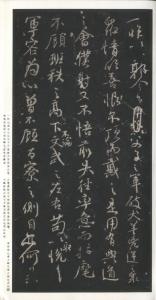 一昨以郭令公以父子之軍破犬羊凶逆之
衆情欣喜恨不頂而戴之是用有興道
之會僕射又不悟前失徑率意而指麾
不顧班秩之高下不論文武之左右苟以取悦
軍容為心曾不顧百寮之側目亦何異